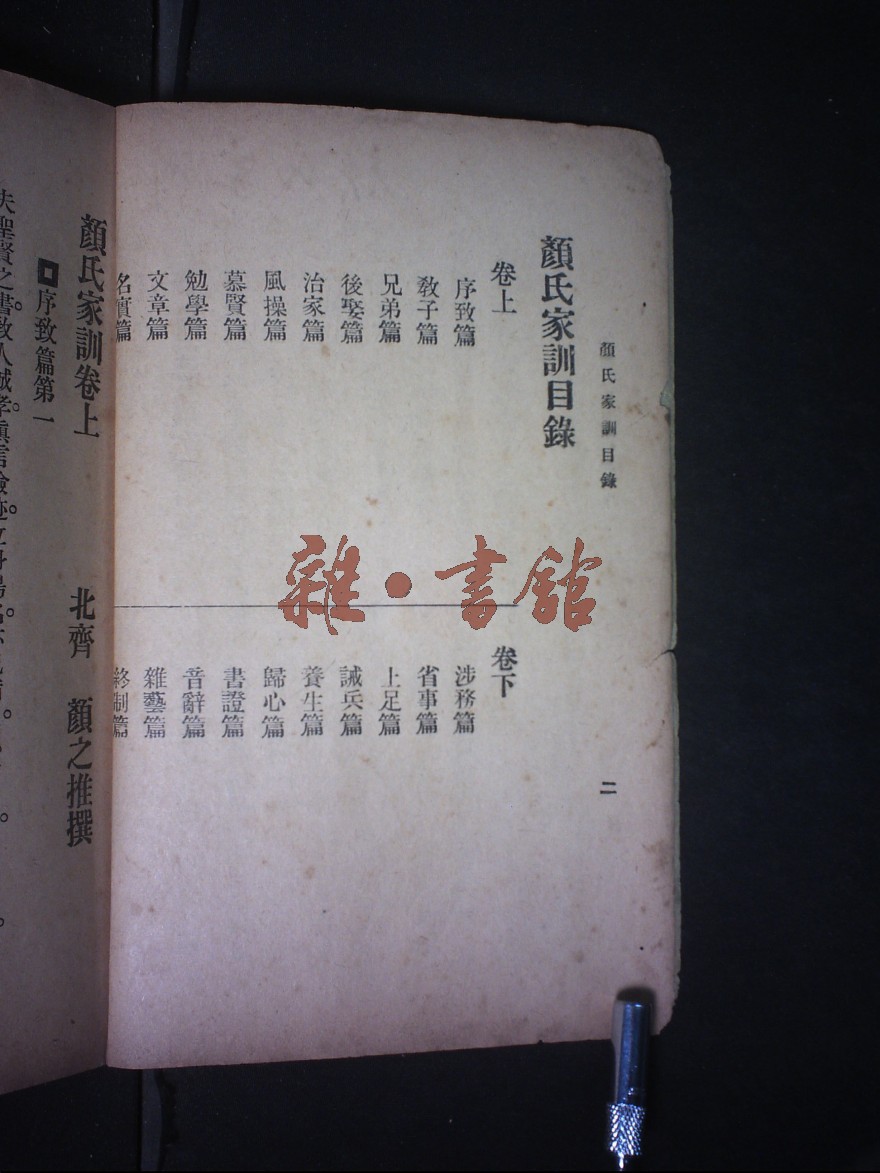 顏氏家訓目錄
二
顏氏家訓目錄
卷上
序致篇
敎子篇
兄弟篇
後娶篇
治家篇
風操篇
慕賢篇
勉學篇
文章篇
名實篇
卷下
涉務篇
省事篇
止足篇
誡兵篇
養生篇
歸心篇
書證篇
音辭篇
雜藝篇
終制篇
雜•書館
顏氏家訓卷上
北齊 顏之推撰
序致篇第一
夫聖賢之書。敎人誠孝。愼言檢迹。立身揚名。